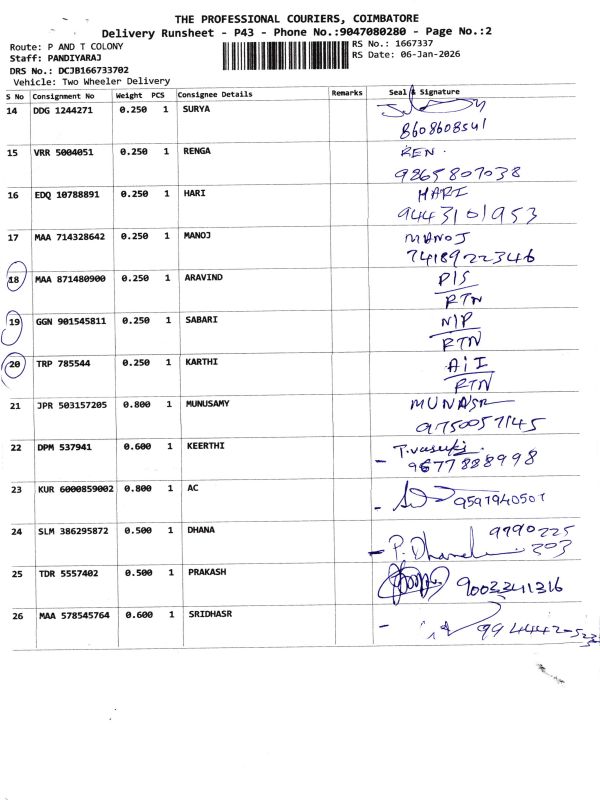 THE PROFESSIONAL COURIERS, COIMBATORE
Delivery Runsheet - P43 - Phone No.:9047080280 - Page No.:2
Route: P AND T COLONY
RS No.: 1667337
Staff: PANDIYARAJ
RS Date: 06-Jan-2026
DRS No.: DCJB166733702
Vehicle: Two Wheeler Delivery
S No Consignment No Weight PCS Consignee Details Remarks Seal & Signature
14 DDG 1244271 0.250 1 SURYA
8608608541
15 VRR 5004051 0.250 1 RENGA REN.
9865807038
16 EDQ 10788891 0.250 1 HARI HARI
9443101953
17 MAA 714328642 0.250 1 MANOJ MANOJ
7418922346
18 MAA 871480900 0.250 1 ARAVIND P/S
RTN
19 GGN 901545811 0.250 1 SABARI N/P
RTN
20 TRP 785544 0.250 1 KARTHI A/I
RTN
21 JPR 503157205 0.800 1 MUNUSAMY
9750057145
22 DPM 537941 0.600 1 KEERTHI - T.vasuki
9677888998
23 KUR 6000859002 0.800 1 AC -
24 SLM 386295872 0.500 1 DHANA 9790225
- P. 203
25 TDR 5557402 0.500 1 PRAKASH 9003341316
26 MAA 578545764 0.600 1 SRIDHASR -